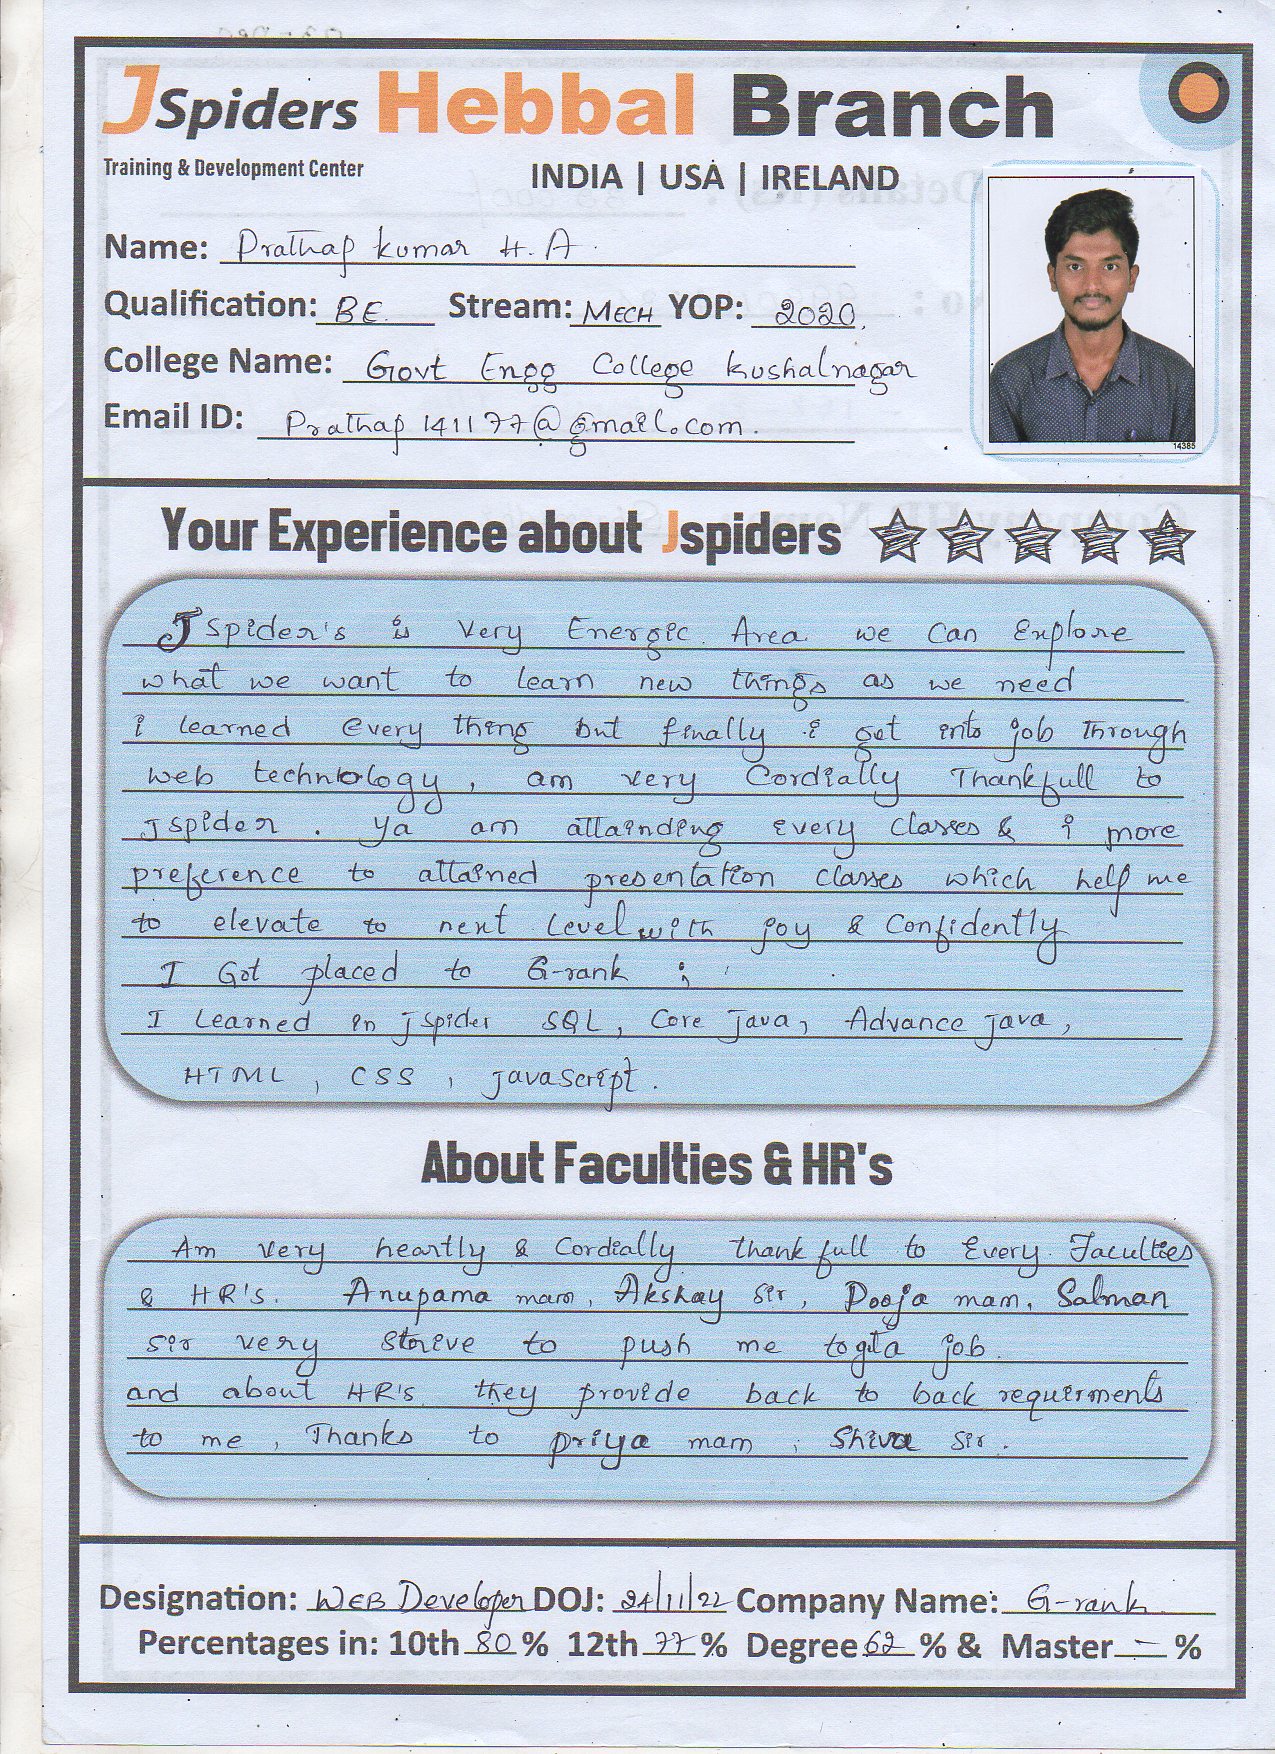 JSpiders Hebbal Branch
Training & Development Center
INDIA | USA | IRELAND
Name: Prathap kumar H.A
Qualification: BE. Stream: MECH YOP: 2020.
College Name: Govt Engg College Kushalnagar
Email ID: Prathap141177@gmail.com.
14385
Your Experience about Jspiders
JSpider's is Very Energic Area we Can Explore
what we want to learn new things as we need
i learned every thing but finally i get into job Through
web technology, am very Cordially Thankfull to
Jspider. ya am attainding every classes & i more
preference to attained presentation classes which help me
to elevate to next level with joy & Confidently
I Got placed to G-rank ;
I Learned in jspider SQL, Core Java, Advance java,
HTML, CSS, javascript.
About Faculties & HR's
Am very heartly & Cordially thankfull to Every Faculties
& HR's. Anupama mam, Akshay sir, Pooja mam, Salman
sir very strive to push me togita job.
and about HR's they provide back to back requirments
to me, Thanks to priya mam, Shiva sir.
Designation: WEB Developer DOJ: 24/11/22 Company Name: G-rank
Percentages in: 10th 80 % 12th 77 % Degree 62 % & Master - %